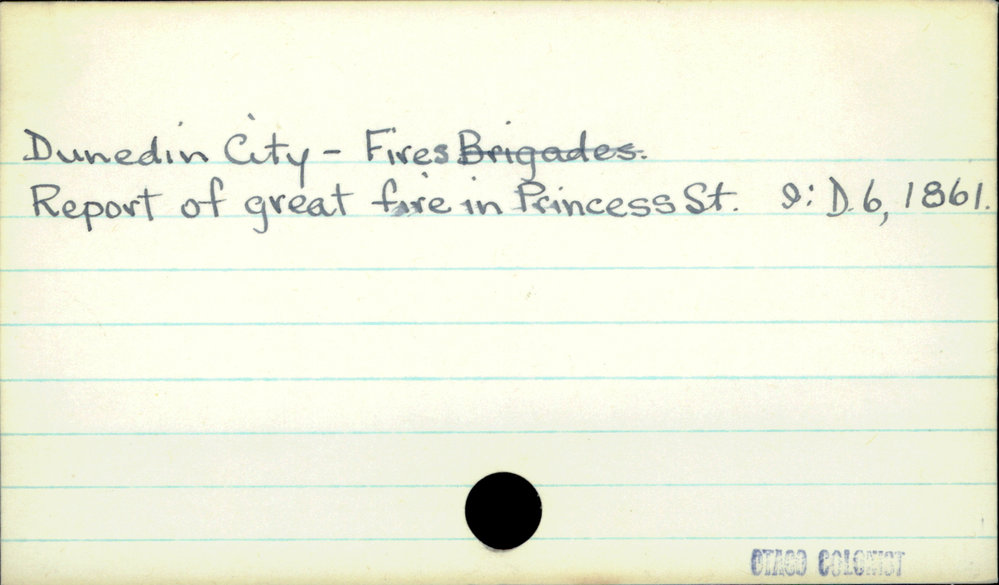 Dunedin City - Fires Brigades.
Report of great fire in Princess St. 9: D. 6, 1861.
OTAGO COLONIST